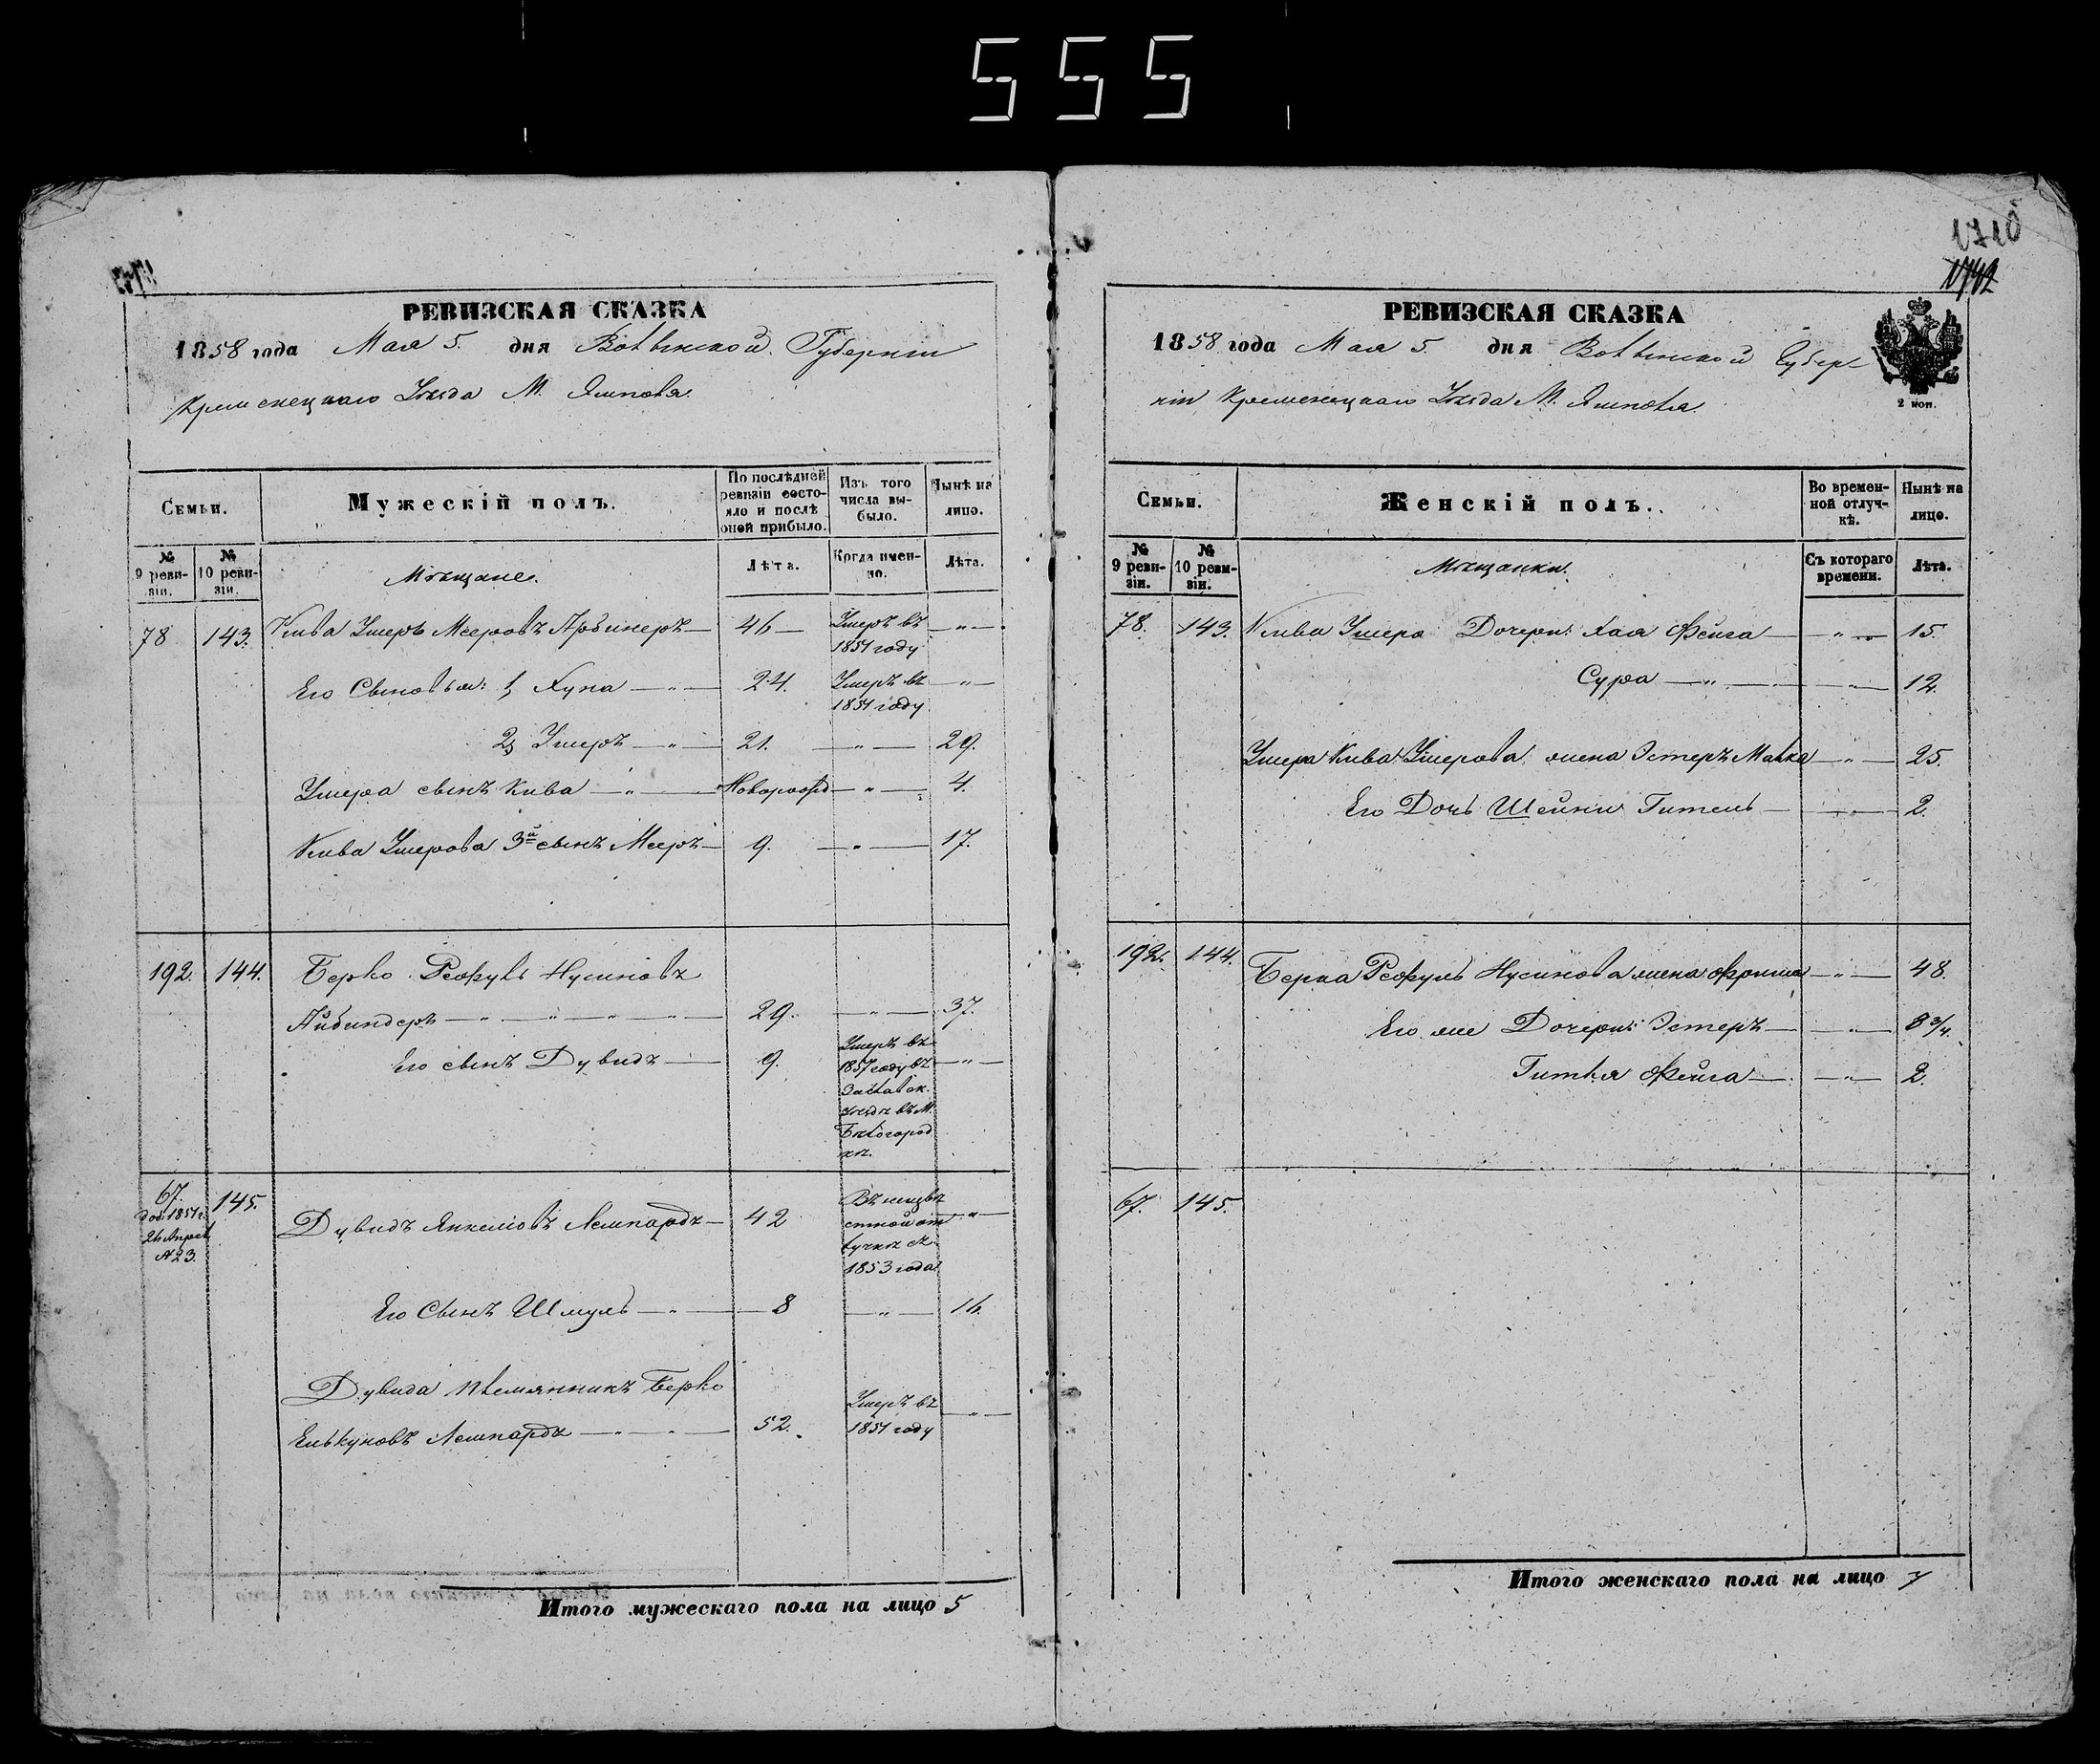 555
РЕВИЗСКАЯ СКАЗКА
1858 года Мая 5. дня Волынской Губерніи
Кременецкаго Уѣзда М. Ямполя.
Семьи.
Мужескій полъ.
По послѣдней ревизіи состояло и послѣ оной прибыло.
Изъ того числа выбыло.
Нынѣ на лицо.
№ 9 ревизіи.
№ 10 ревизіи.
Мѣщане.
Лѣта.
Когда именно.
Лѣта.
78 143. Кива Умеръ Мееровъ 46 Умеръ въ 1851 году
Его Сыновья: 1, Хуна 24. Умеръ въ 1851 году
2, Ушеръ 21. 29.
Ушера сынъ Кива Новорожд 4.
Кива Ушерова 3й сынъ Мееръ 9. 17.
192. 144. Берко Рефуль Нусиновъ
Айбиндеръ 29. 37.
Его сынъ Дувидъ 9. Умеръ въ
1857 году въ
Заславск.
уѣздѣ въ М.
Бѣлогород
кѣ.
67. 145. Дувидъ Янкеліовъ Лемпардъ 42 Въ неизвѣ
доп. 1851 г. стной от
26 Апрел лучкѣ съ
№ 23. 1853 года
Его Сынъ Шмуль 8 16.
Дувида племянникъ Берко
Елькуновъ Лемпардъ 52. Умеръ въ 1851 году
Итого мужескаго пола на лицо 5
1710
1742
РЕВИЗСКАЯ СКАЗКА
1858 года Мая 5. дня Волынской Губер
ніи Кременецкаго Уѣзда М. Ямполя.
2 коп.
Семьи.
Женскій полъ.
Во временной отлучкѣ.
Нынѣ на лицо.
№ 9 ревизіи.
№ 10 ревизіи.
Мѣщанки.
Съ котораго времени.
Лѣта.
78. 143. Кива Ушера Дочери: Хая Фейга 15.
Сура 12.
Ушера Кива Ушерова жена Эстеръ Малка 25.
Его Дочь Шейни Гитель 2.
192. 144. Берка Рефуль Нусинова жена Фрима 48.
Его же Дочери: Эстеръ 8 3/4.
Гитля Фейга 2.
67. 145.
Итого женскаго пола на лицо 7